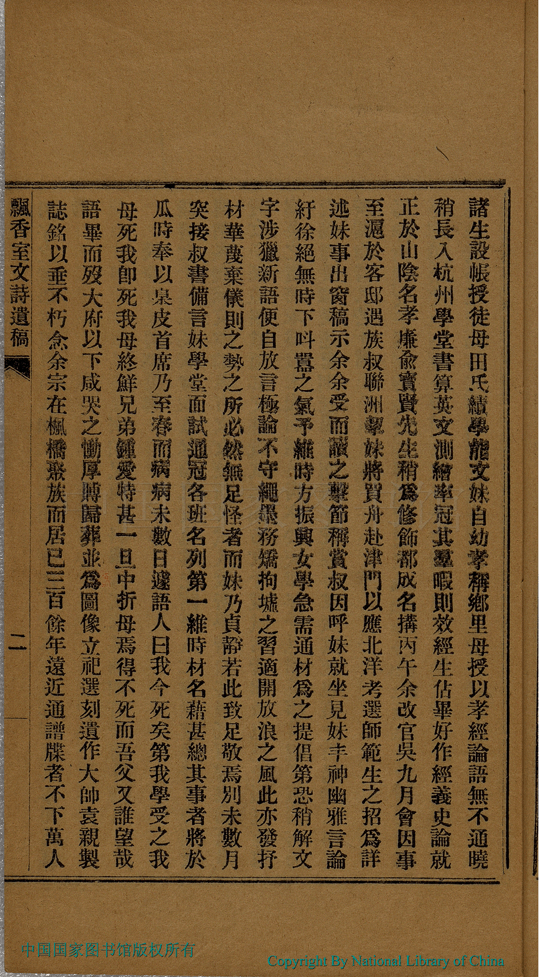 諸生設帳授徒母田氏績學龍文妹自幼孝稱鄉里母授以孝經論語無不通曉
稍長入杭州學堂書算英文測繪率冠其羣暇則效經生佔畢好作經義史論就
正於山陰名孝廉俞寶賢先生稍爲修飾都成名搆丙午余改官吳九月會因事
至滬於客邸遇族叔聯洲挈妹將買舟赴津門以應北洋考選師範生之招爲詳
述妹事出窗稿示余余受而讀之擊節稱賞叔因呼妹就坐見妹丰神幽雅言論
紆徐絕無時下叫囂之氣予維時方振興女學急需通材爲之提倡第恐稍解文
字涉獵新語便自放言極論不守繩墨務矯拘墟之習適開放浪之風此亦發抒
材華蔑棄儀則之勢之所必然無足怪者而妹乃貞靜若此致足敬焉別未數月
突接叔書備言妹學堂面試通冠各班名列第一維時材名藉甚總其事者將於
瓜時奉以臯皮首席乃至春而病病未數日遽語人曰我今死矣第我學受之我
母死我卽死我母終鮮兄弟鍾愛特甚一旦中折母焉得不死而吾父又誰望哉
語畢而歿大府以下咸哭之慟厚賻歸葬並爲圖像立祀選刻遺作大帥袁親製
誌銘以垂不朽念余宗在楓橋聚族而居已三百餘年遠近通譜牒者不下萬人
飄香室文詩遺稿
二
中国国家图书馆版权所有
Copyright By National Library of China